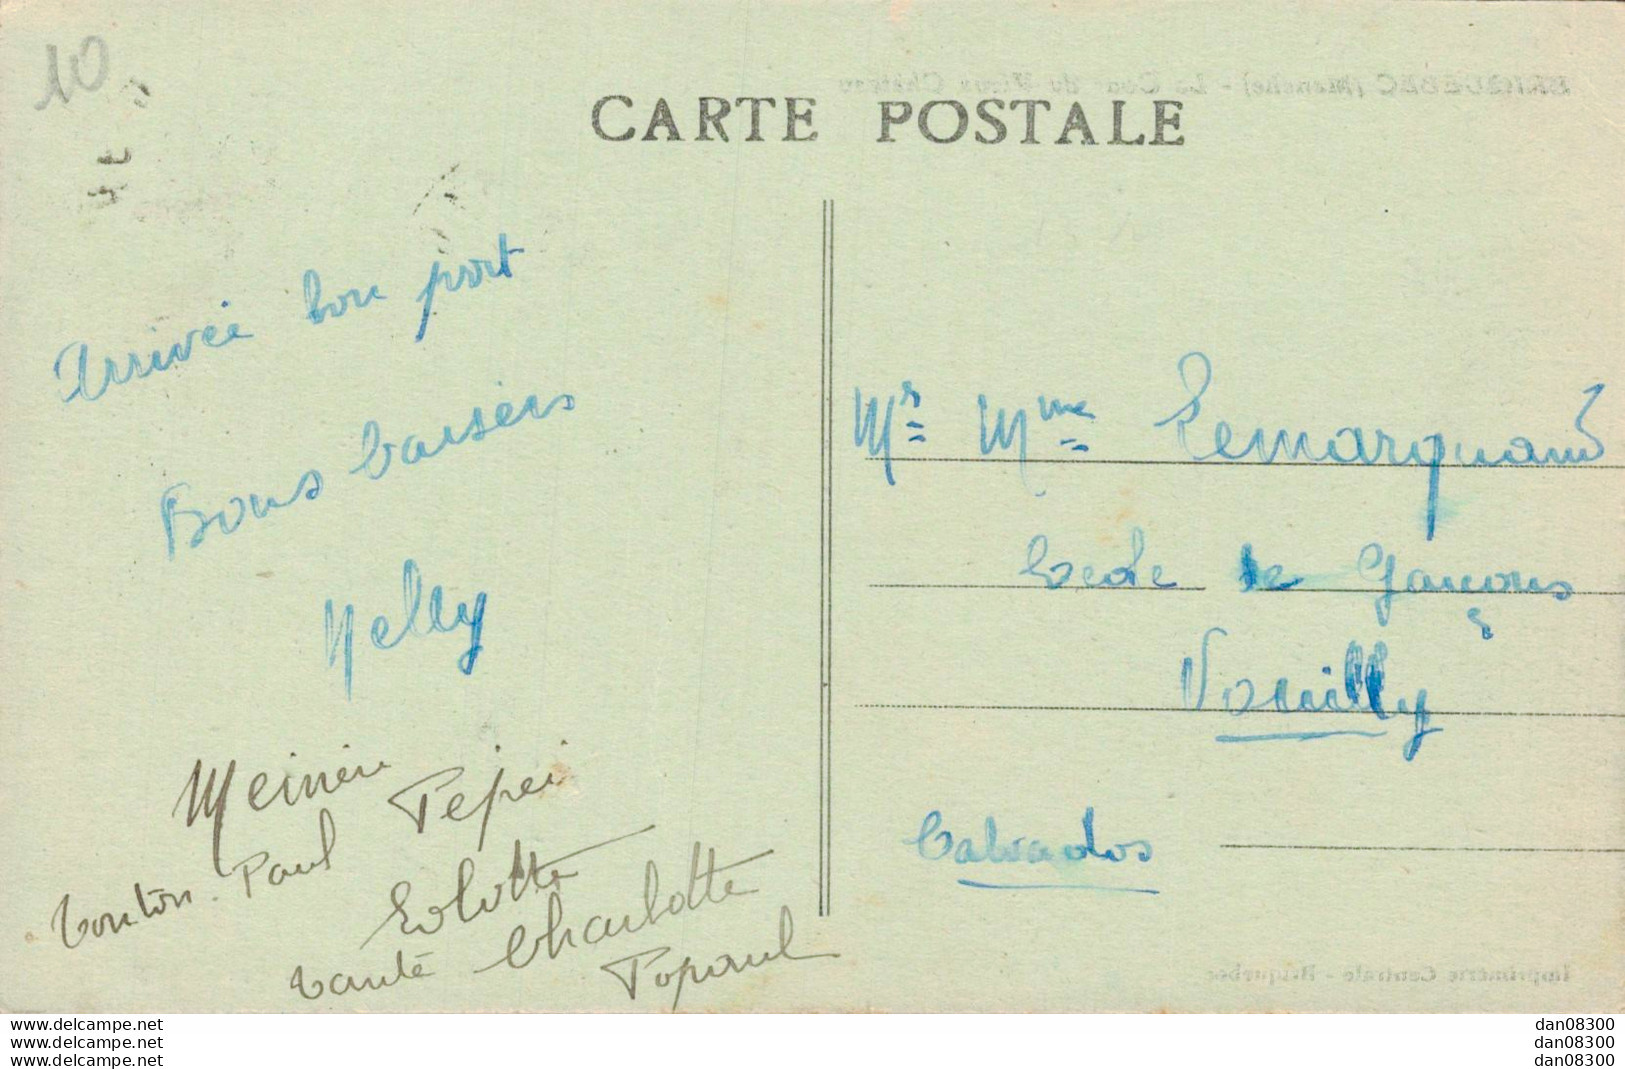 10
BRICQUEBEC (Manche) - La Cour du Vieux Château
CARTE POSTALE
Arrivée bon port
Bons baisers
Nelly
Pepei
Tonton Paul
Lolotte
Tante Charlotte
Popaul
Mr Mme Lemarquand
Ecole de Garçons
Vouilly
Calvados
Imprimerie Centrale - Bricquebec
www.delcampe.net
www.delcampe.net
www.delcampe.net
dan08300
dan08300
dan08300